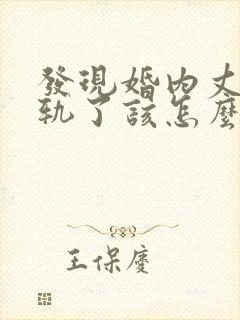 發現婚內丈
軌了該怎麼
王保慶